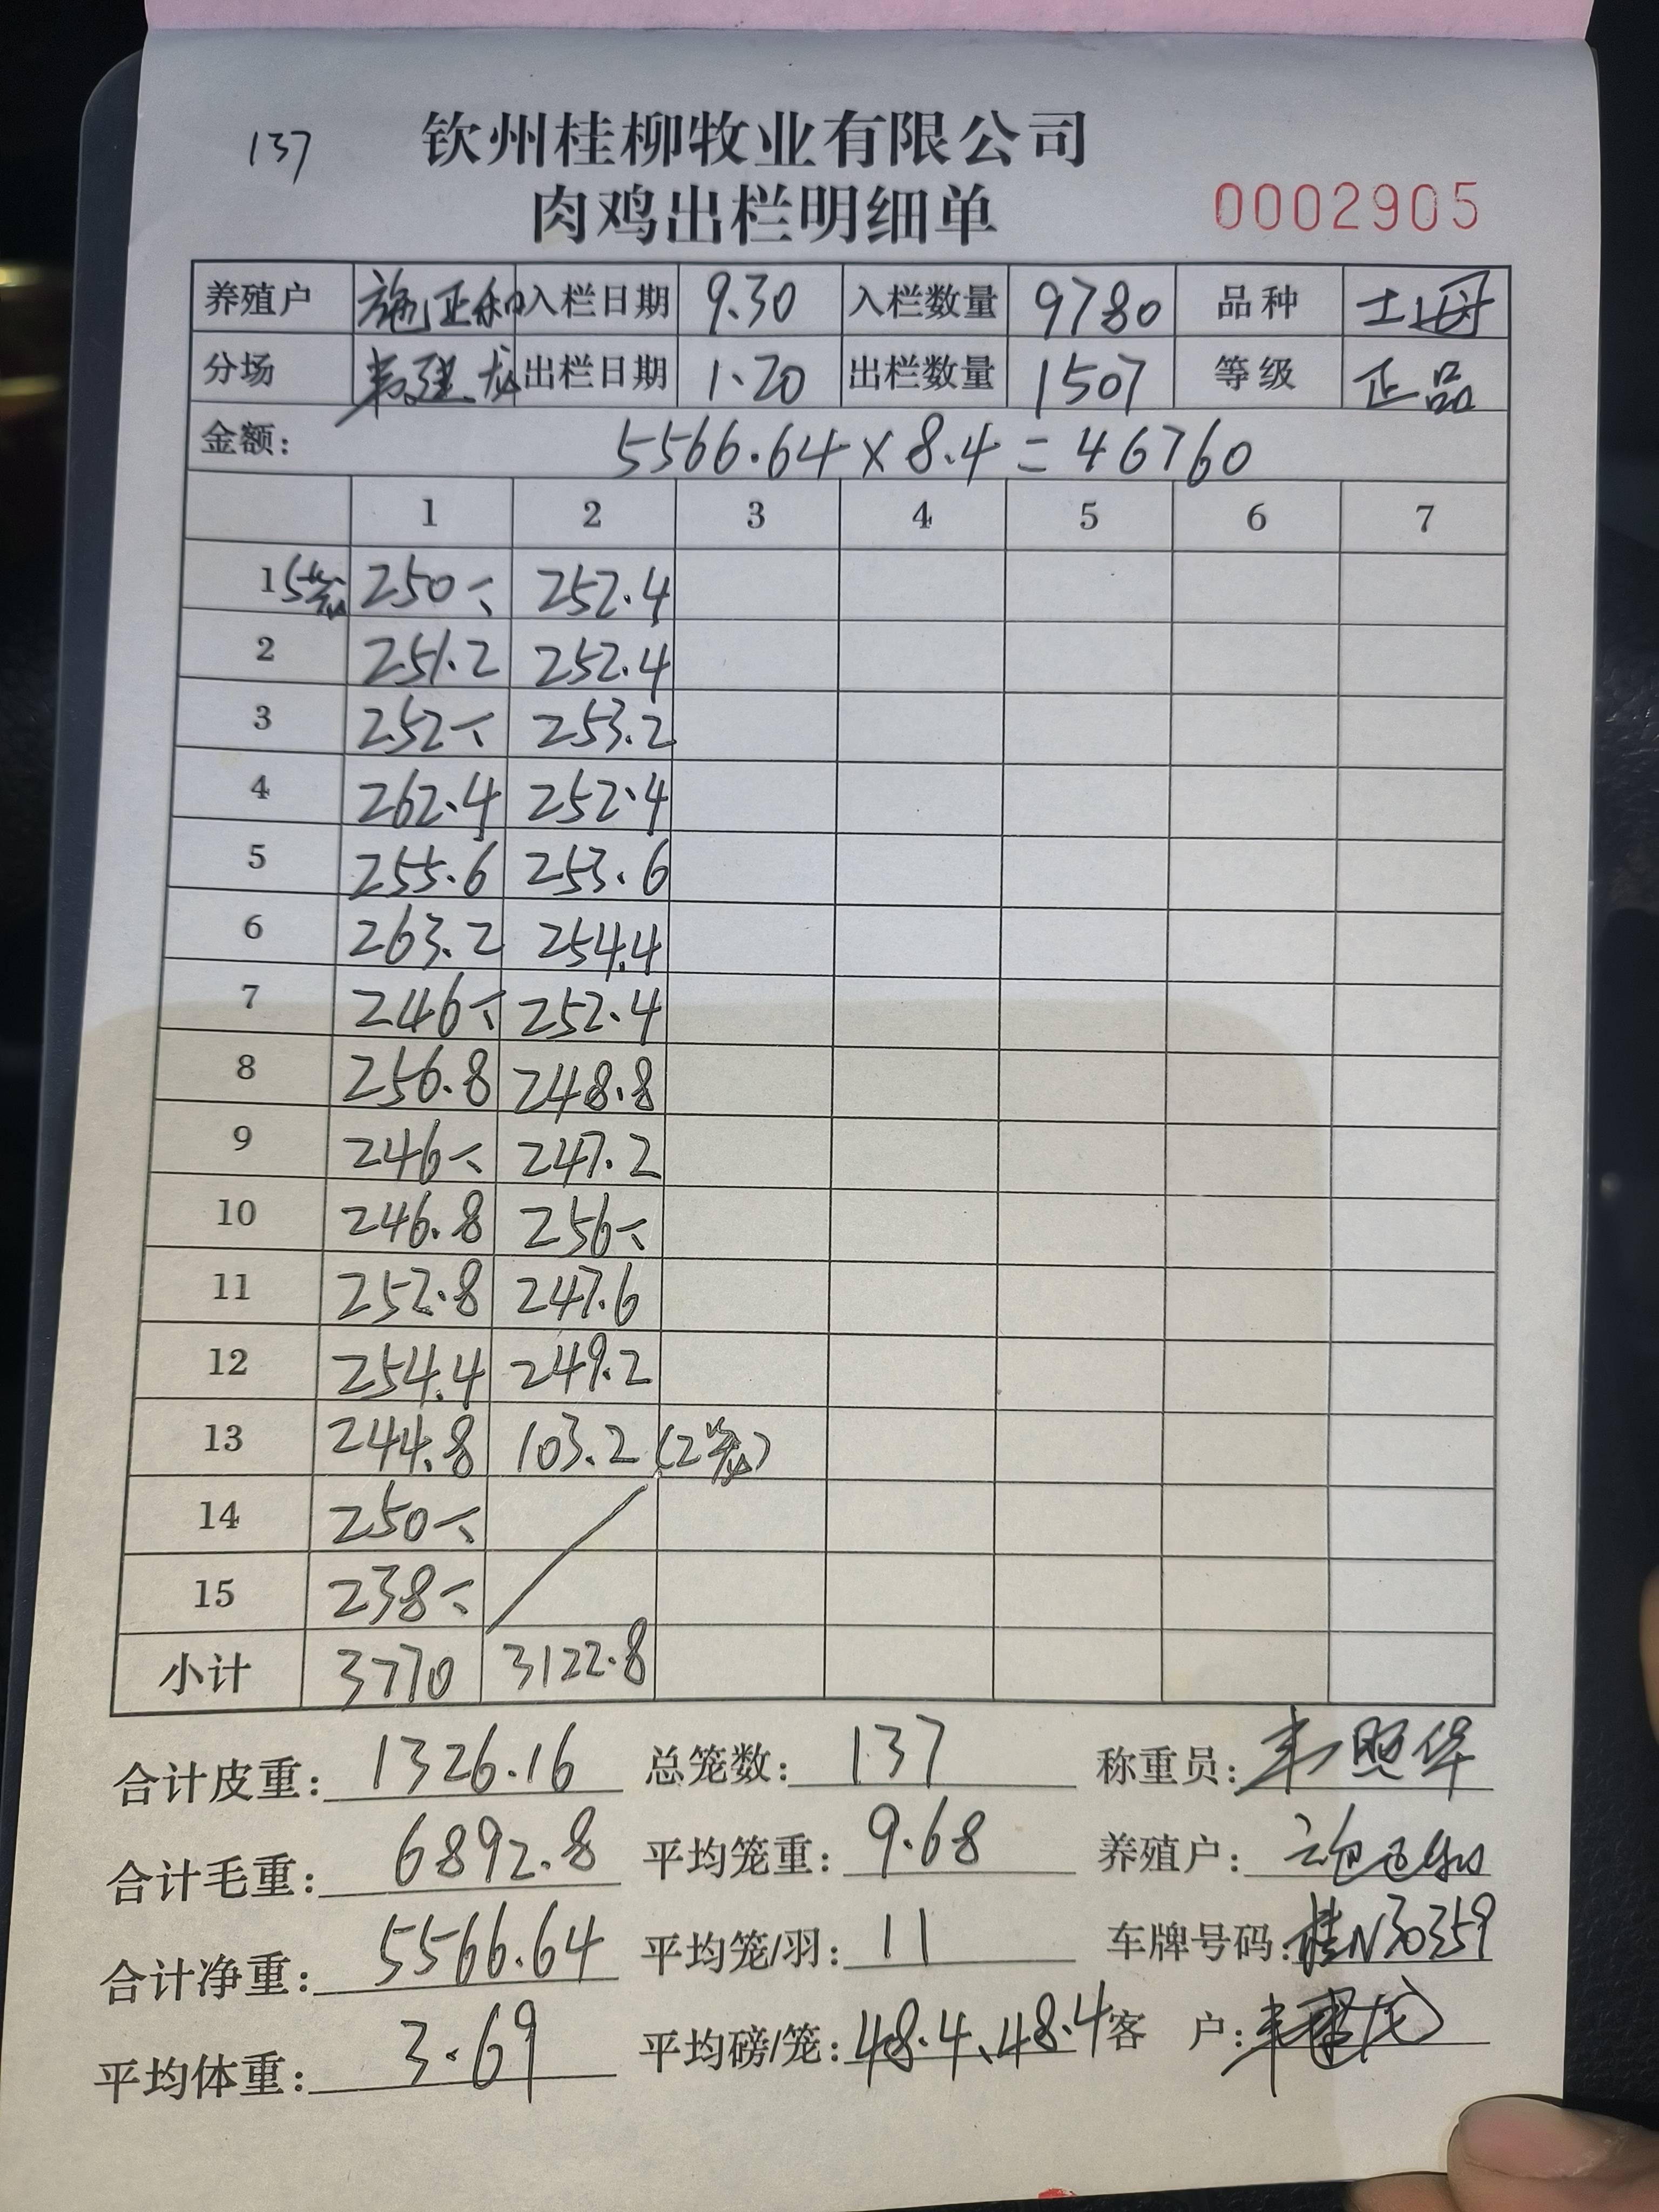 137
钦州桂柳牧业有限公司
肉鸡出栏明细单
0002905
养殖户 施正和 入栏日期 9.30 入栏数量 9780 品种 土母
分场 韦建龙 出栏日期 1.20 出栏数量 1507 等级 正品
金额: 5566.64×8.4=46760
1 2 3 4 5 6 7
1 5笼 250 252.4
2 251.2 252.4
3 252 253.2
4 262.4 252.4
5 255.6 253.6
6 263.2 254.4
7 246 252.4
8 256.8 248.8
9 246 247.2
10 246.8 256
11 252.8 247.6
12 254.4 249.2
13 244.8 103.2 (2笼)
14 250
15 238
小计 3770 3122.8
合计皮重: 1326.16 总笼数: 137 称重员: 韦照华
合计毛重: 6892.8 平均笼重: 9.68 养殖户: 施正和
合计净重: 5566.64 平均笼/羽: 11 车牌号码: 桂N30359
平均体重: 3.69 平均磅/笼: 48.4、48.4 客户: 韦建龙